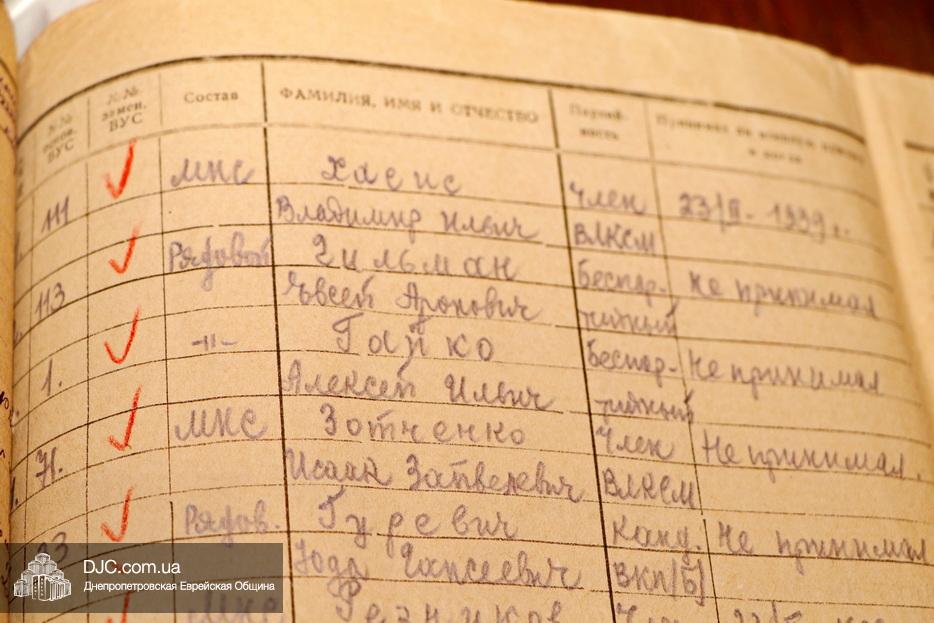 №№
ВУС
№№
замен.
ВУС
Состав
ФАМИЛИЯ, ИМЯ И ОТЧЕСТВО
Партий-
ность
Принимал ли
111
МНС
Хасис
Владимир Ильич
Член
ВЛКСМ
23/II - 1939 г.
113
Рядовой
Гильман
Евсей Аронович
Беспар-
тийный
Не принимал
1.
-"-
Гапко
Алексей Ильич
Беспар-
тийный
Не принимал
71.
МНС
Зотченко
Исаак
Член
ВЛКСМ
Не принимал.
Рядов.
Гуревич
Канд.
ВКП(б)
Не принимал
МНС
Резников
DJC.com.ua
Днепропетровская Еврейская Община